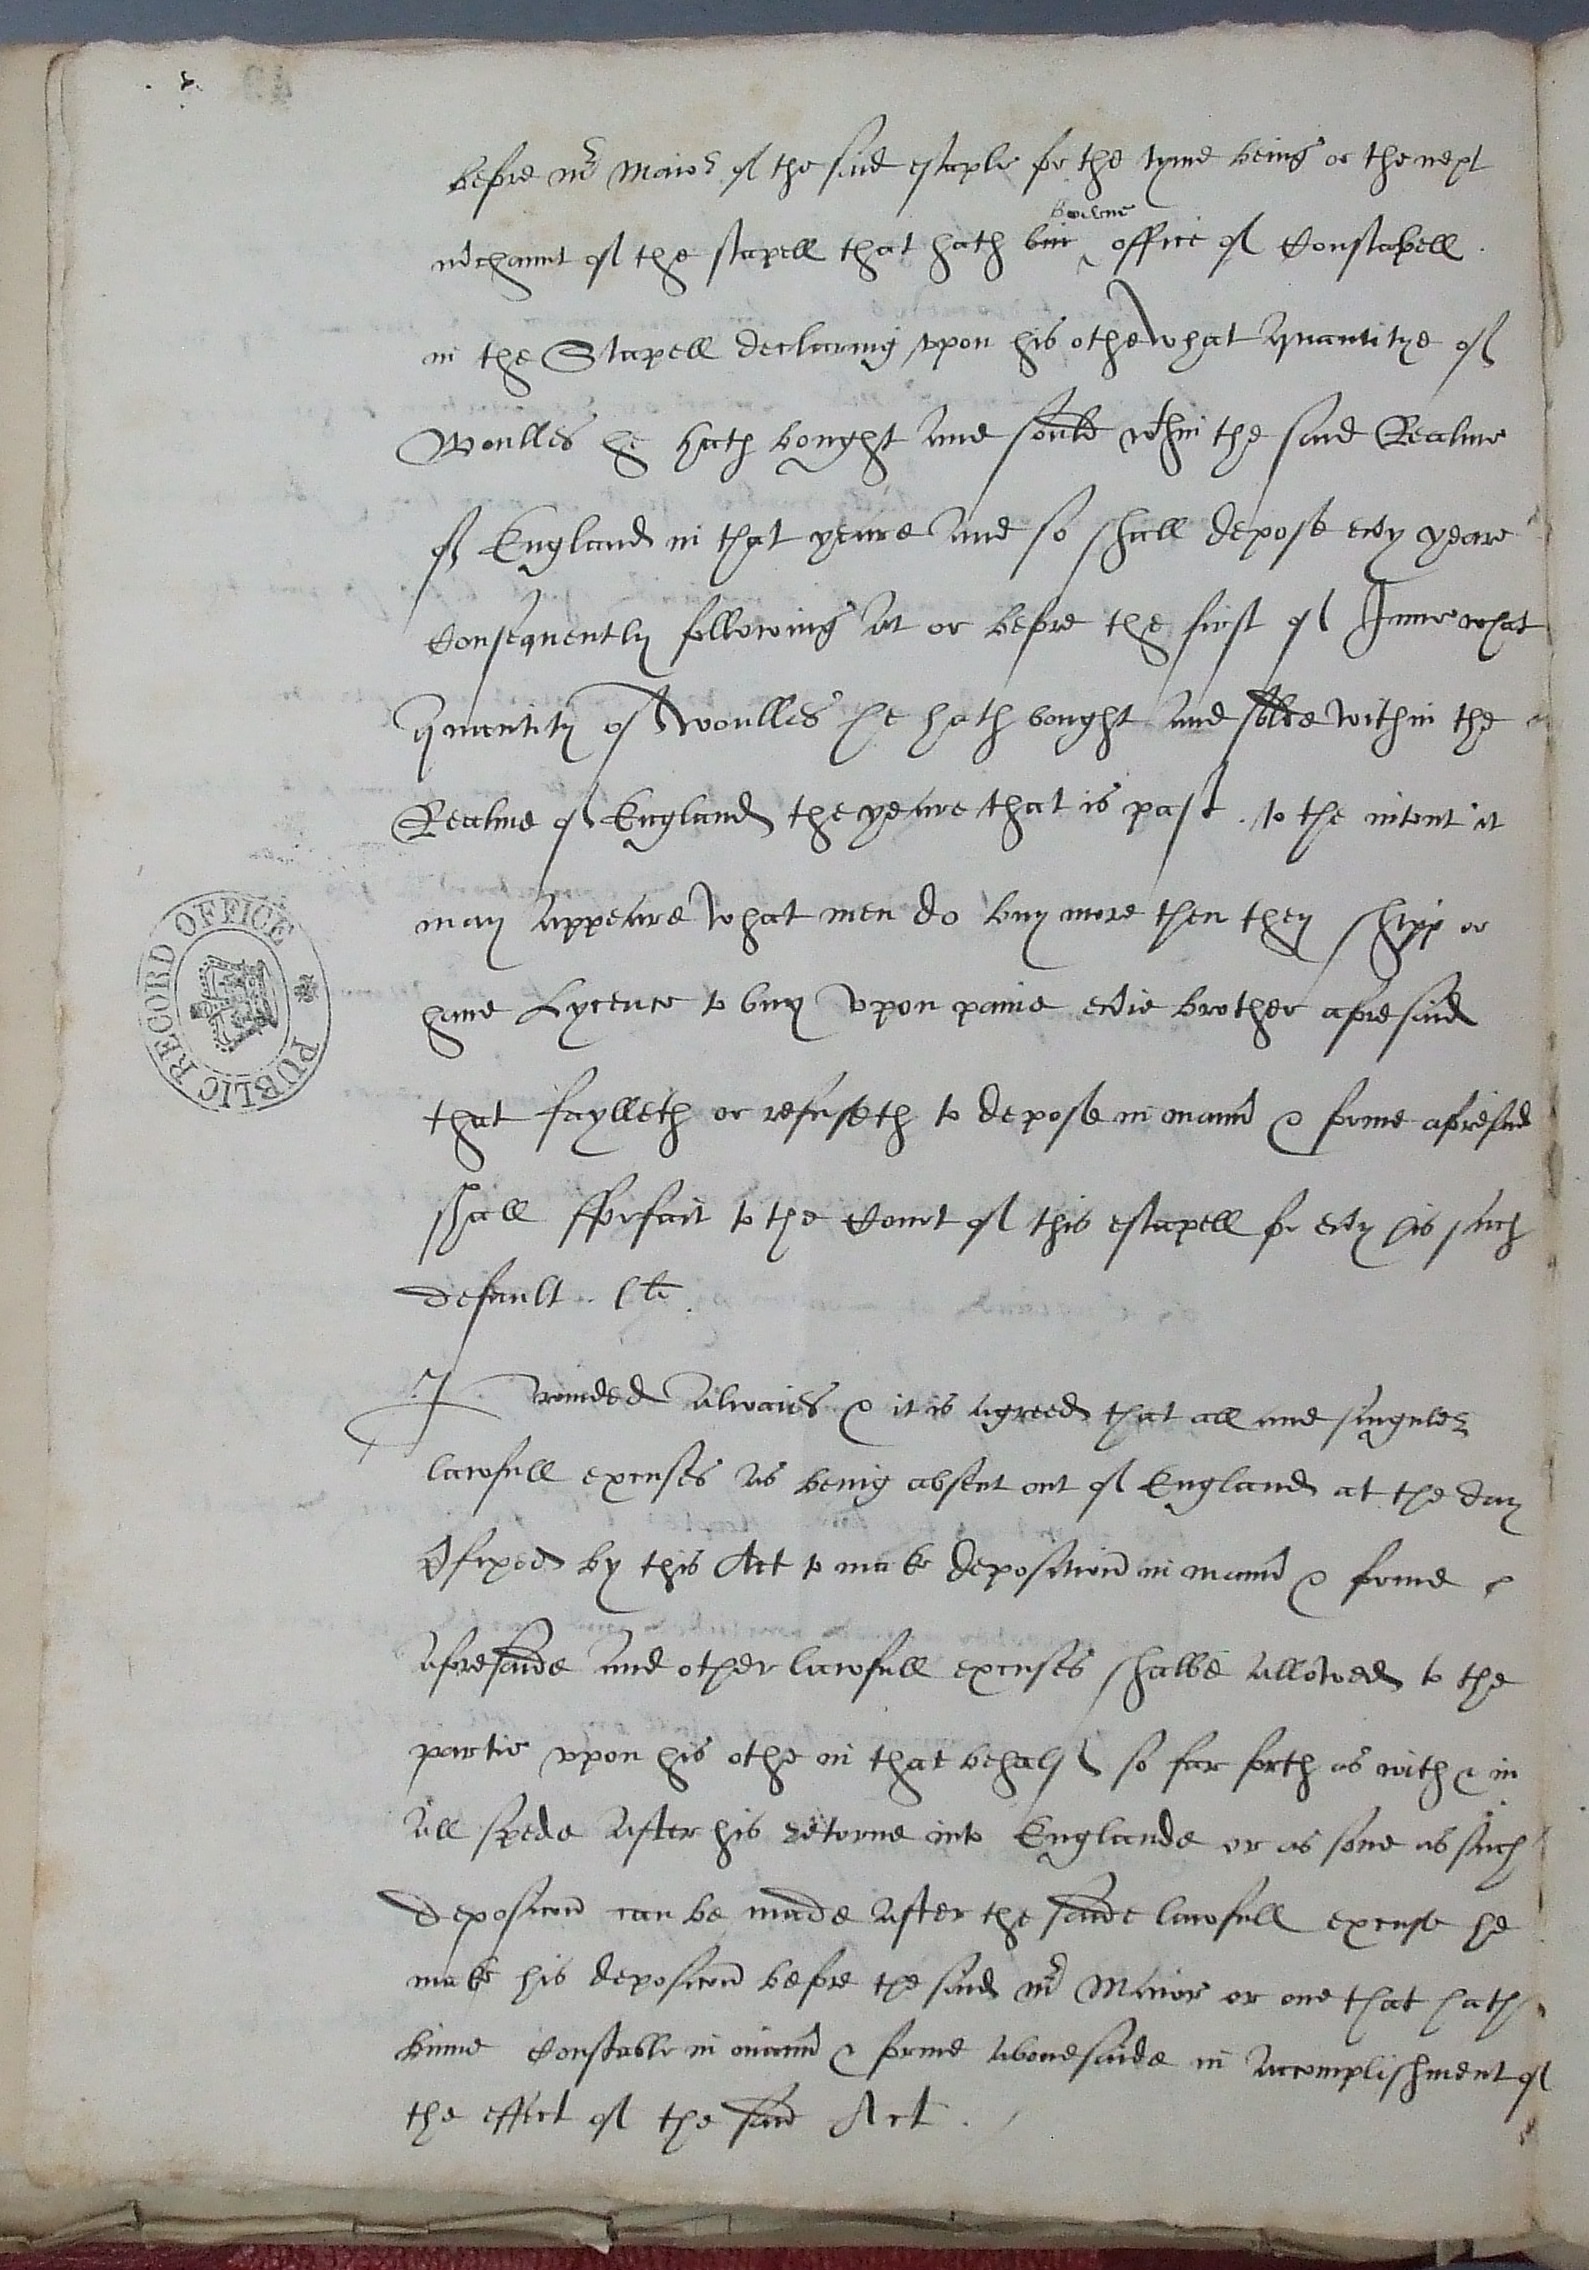 before mr Maior of the said estaple for the tyme being or the next
mchaunt of the stapell that hath bin office of Constapell.
in the Stapell declaring upon his othe what quantitye of
Woulles he hath bought and sould wthin the said Realme
of England in that yeare and so shall depose evy yeare
Consequently following at or before the first of June what
quantity of woulles he hath bought and solde within the
Realme of England the yeare that is past. to the intent it
may appeare what men do buy more then they shipp or
have Lycence to buy upon paine evie brother aforesaid
that faylleth or refuseth to depose in mann & forme aforesaid
shall fforfait to the Court of this estapell for evy his such
default. l li.
Provided alwaies & it is agreed that all and singuler
lawfull excuses as being absent out of England at the day
pfixed by this Act to make deposition in mann & forme
aforesaide and other lawfull excuses shalbe allowed to the
partie upon his othe in that behalf so far forth as with & in
all spede after his retorne into Englande or as sone as such
deposicon can be made after the saide lawfull excuse he
make his deposicon before the said mr Maior or one that hath
binne Constable in mann & forme abovesaide in accomplishment of
the effect of the said Act.
PUBLIC RECORD OFFICE